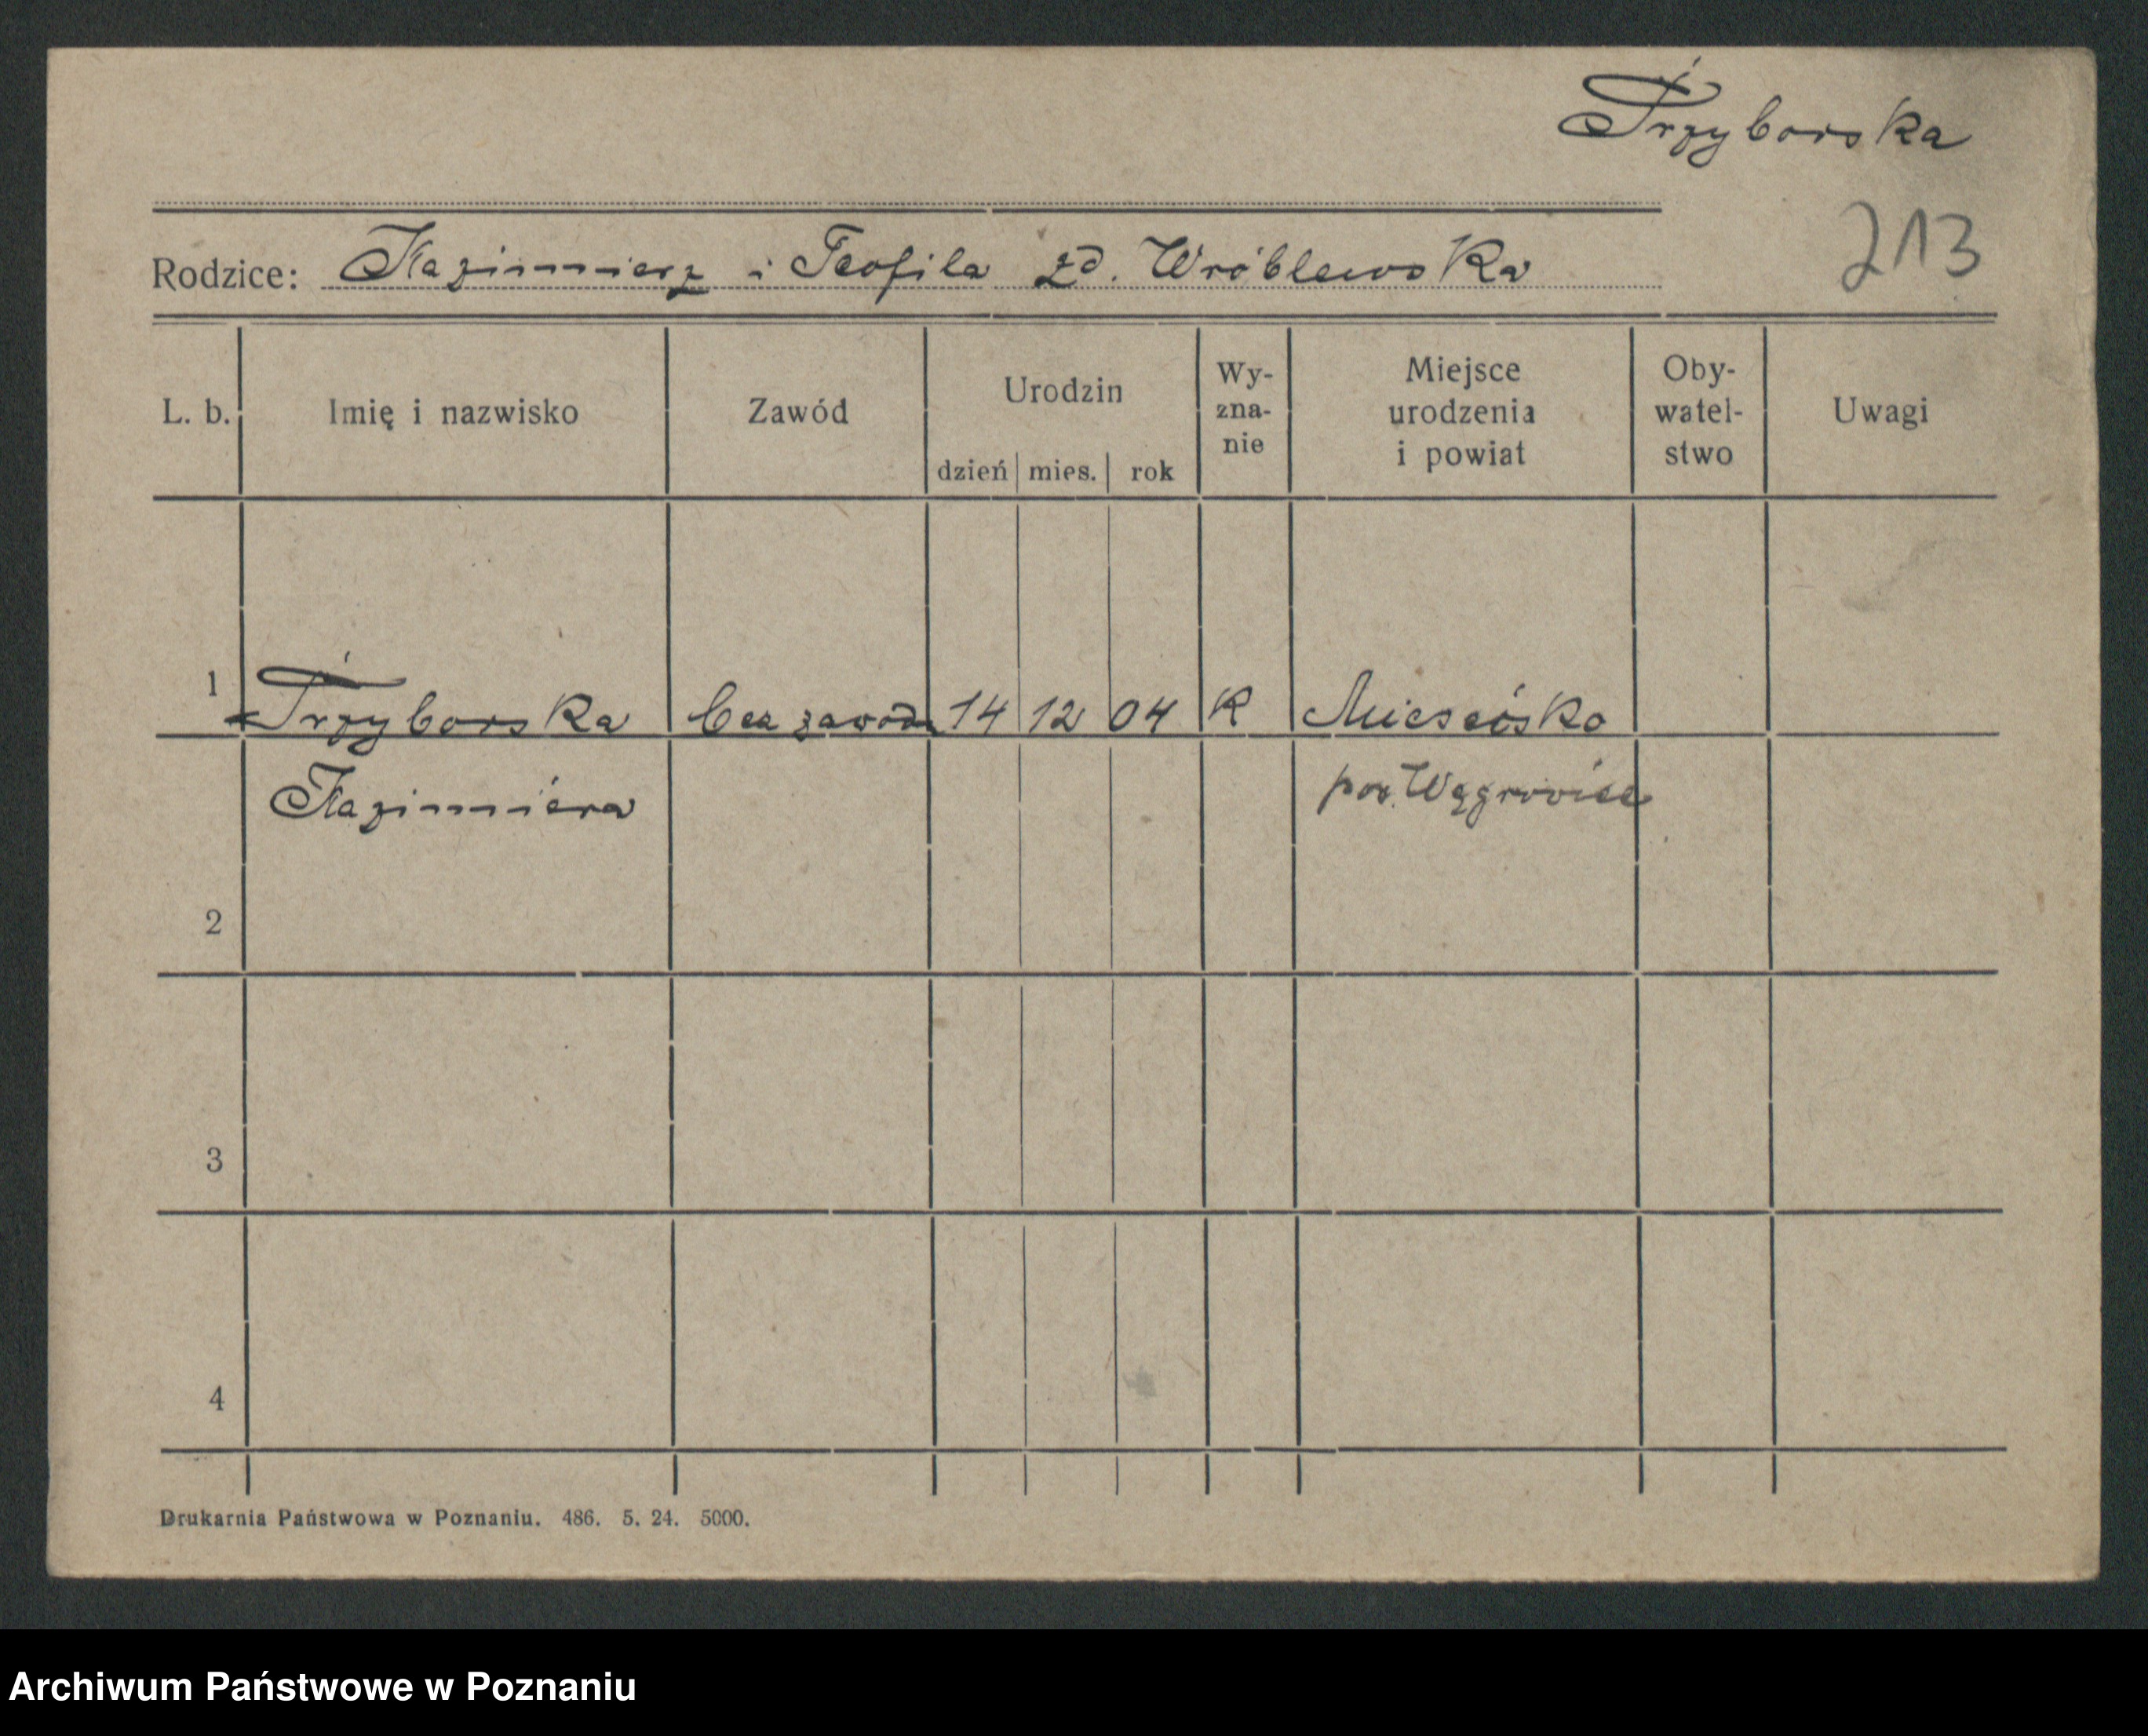 Trzyborska
213
Rodzice: Kazimierz i Teofila zd. Wróblewska
L. b. Imię i nazwisko Zawód Urodzin dzień mies. rok Wy-zna-nie Miejsce urodzenia i powiat Oby-watel-stwo Uwagi
1 Trzyborska bez zawodu 14 12 04 K Mieścisko
Kazimiera pow. Wągrowiec
2
3
4
Drukarnia Państwowa w Poznaniu. 486. 5. 24. 5000.
Archiwum Państwowe w Poznaniu